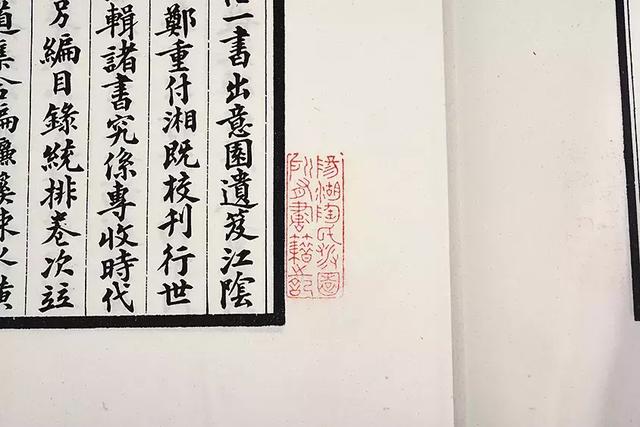 陽湖陶氏涉園
所有書籍之記
一書出意園遺笈江陰
鄭重付湘既校刊行世
輯諸書究係專收時代
另編目錄統排卷次竝
道集合編濂溪東之黃